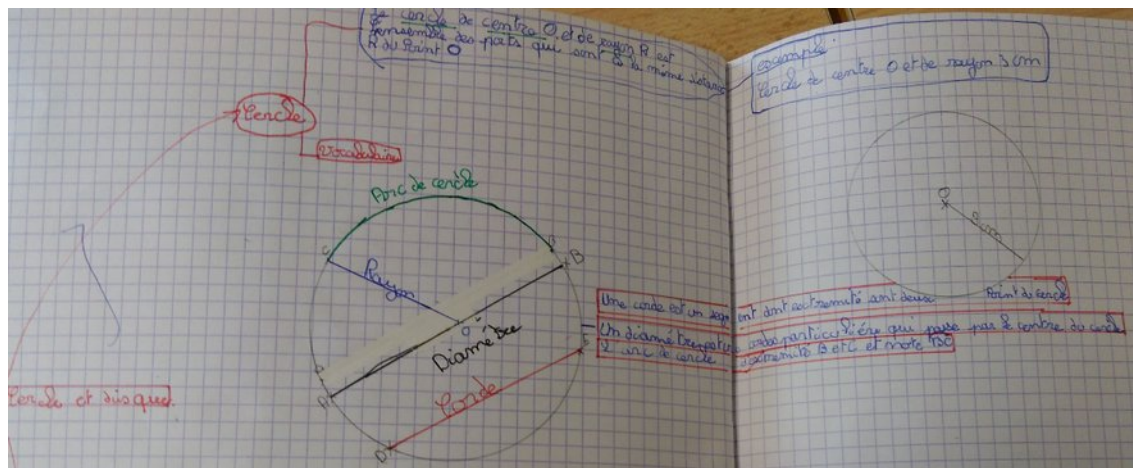 Le cercle de centre O et de rayon R est
l'ensemble des points qui sont à la même distance
R du Point O
exemple :
Cercle de centre O et de rayon 3 cm
Cercle
vocabulaire
Arc de cercle
C
B
B
Rayon
O
O
3cm
Diamètre
Point du cercle
Une corde est un segment dont extremité sont deux
Un diamètre est une corde particulière qui passe par le centre du cercle
L'arc de cercle extremité B et C et note BC
E
A
Corde
D
Cercle et disque.